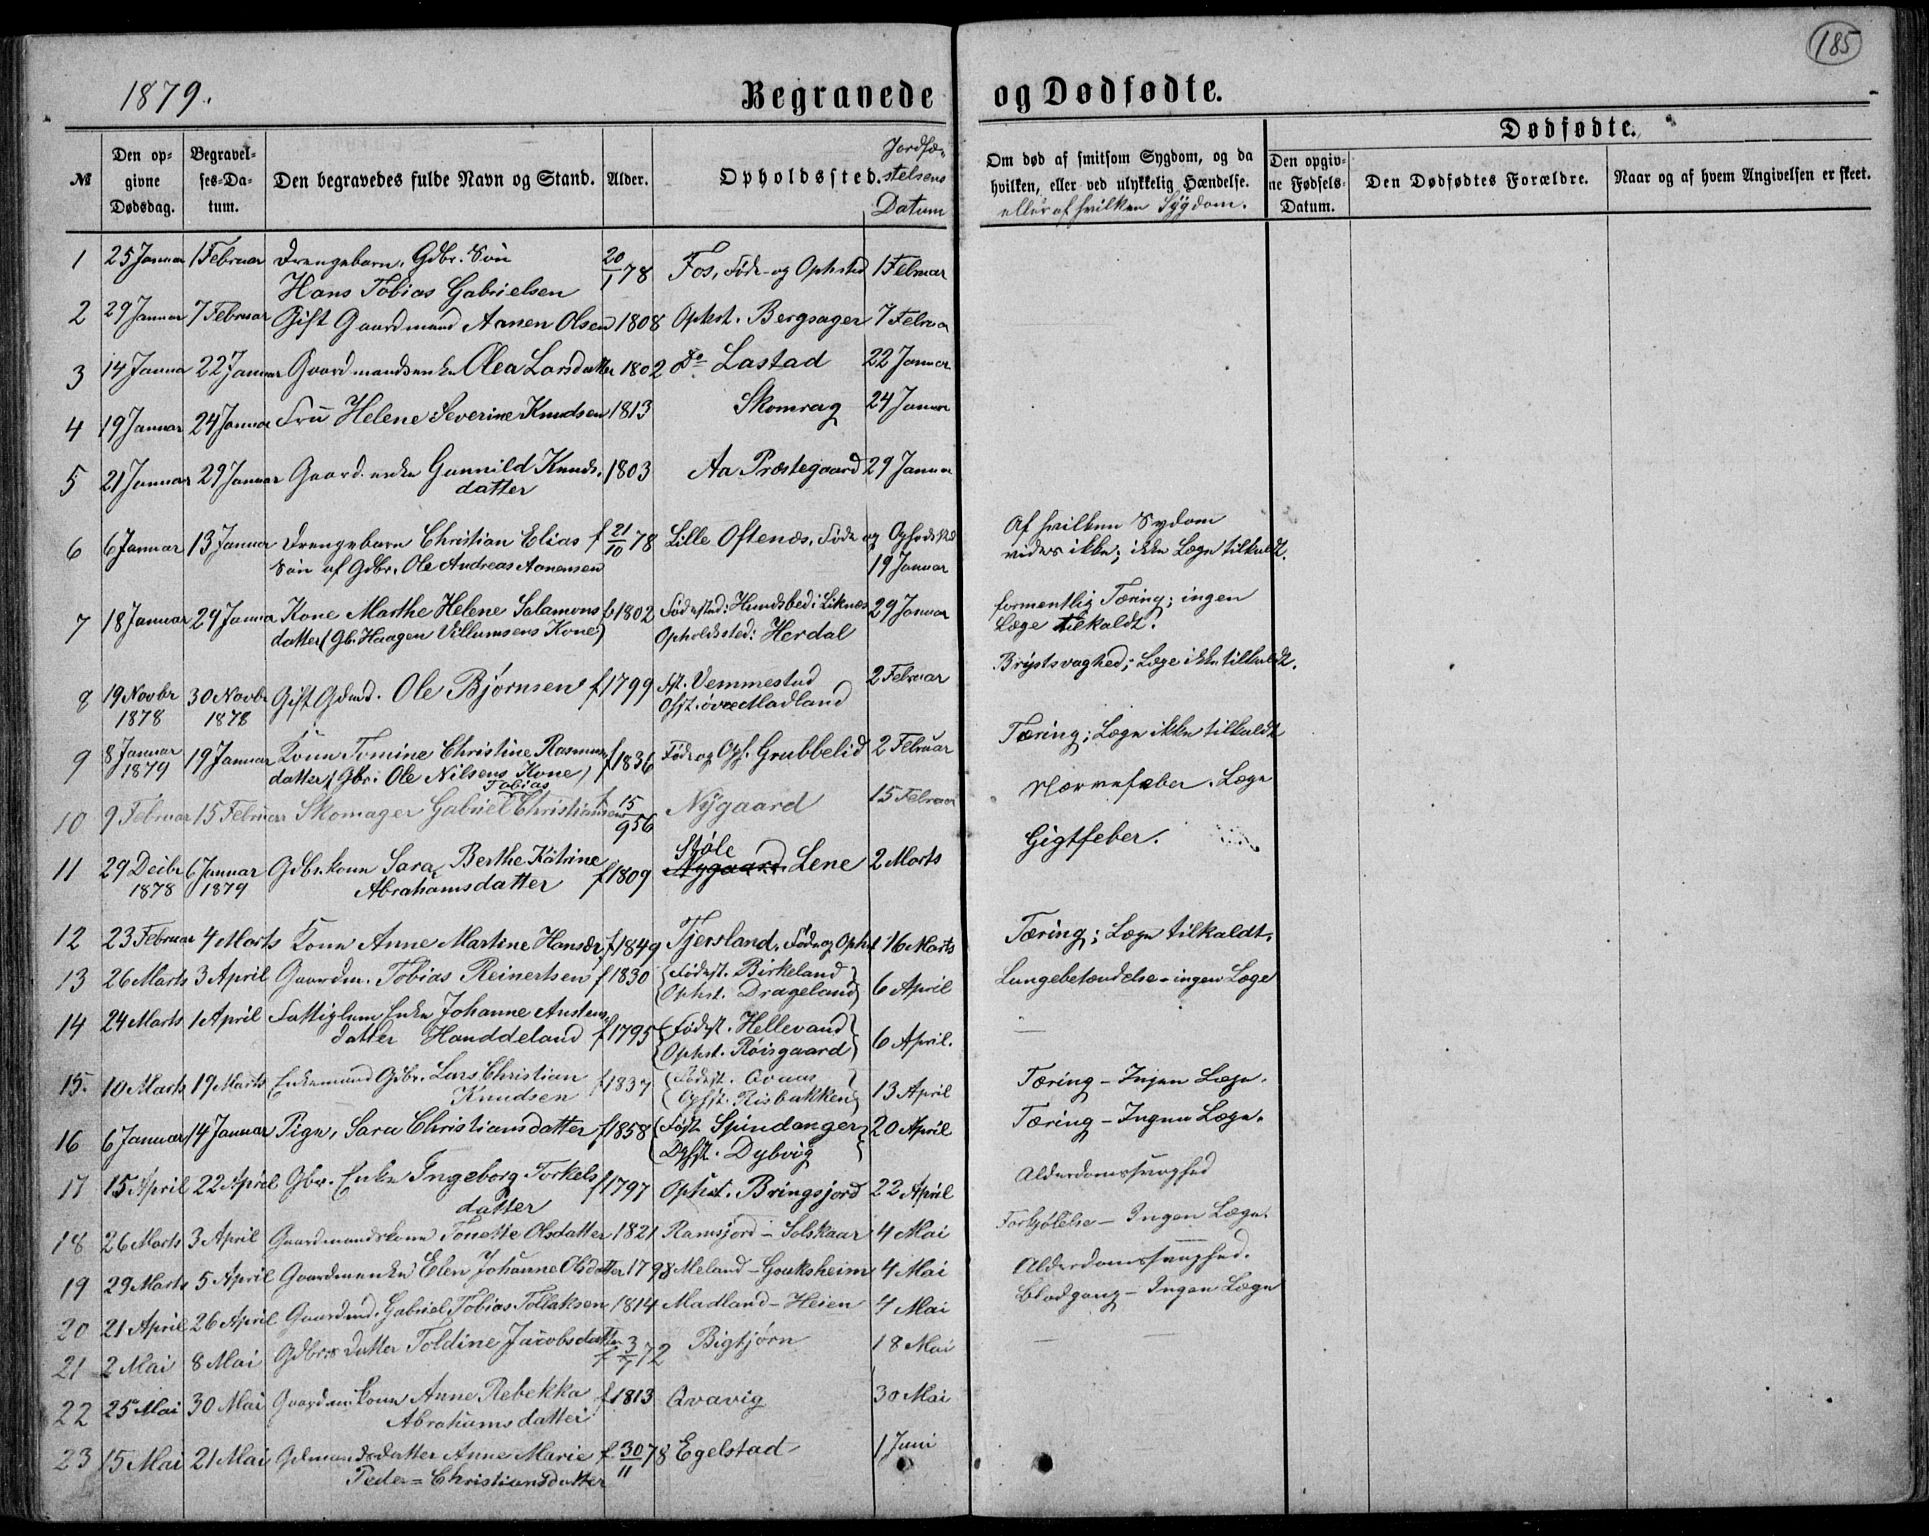 185
1879.
Begravede og Dødfødte.
№
Den opgivne Dødsdag.
Begravelses-Datum.
Den begravedes fulde Navn og Stand.
Alder.
Opholdssted.
Jordfæstelsens Datum
Om død af smitsom Sygdom, og da hvilken, eller ved ulykkelig Hændelse.
eller af hvilken Sygdom.
Dødfødte.
Den opgivne Fødsels-Datum.
Den Dødfødtes Forældre.
Naar og af hvem Angivelsen er skeet.
1 25 Januar 1 Februar Drengebarn, Gdbr. Søn 20/1 78 Fos, Føde- og Ophsted 1 Februar
Hans Tobias Gabrielsen
2 29 Januar 7 Februar Gift Gaardmand Aanen Olsen 1808 Ophst. Bergsager 7 Februar
3 14 Januar 22 Januar Gaardmandsenke Olea Larsdatter 1802 Do Lastad 22 Januar
4 19 Januar 24 Januar Fru Helene Severine Knudsen 1813 Skomrag 24 Januar
5 21 Januar 29 Januar Gaard. enke Gunnild Knuds. 1803 Aa Præstegaard 29 Januar
datter
6 6 Januar 13 Januar Drengebarn Christian Elias f 21/10 78 Lille Oftenæs, Føde og Ophodsted Af hvilken Sydom
Søn af Gdbr. Ole Andreas Aanensen 19 Januar vides ikke; ikke Læge tilkaldt.
7 18 Januar 29 Januar Kone Marthe Helene Salamons f 1802 Fødested: Hundsbed i Liknæs 29 Januar formentlig Tæring; ingen
datter (Gb. Haagen Villumsens Kone) Opholdssted: Herdal Læge tilkaldt.
8 19 Novbr 1878 30 Novbr 1878 Gift Gdmd. Ole Bjørnsen f 1799 Fst. Vemmestad 2 Februar Brystsvaghed; Læge ikke tilkaldt.
Ophst. øvre Madland
9 8 Januar 1879 19 Januar Kone Tomine Christine Rasmus f 1836 Føde og Oph. Grubbelid 2 Februar Tæring; Læge ikke tilkaldt
datter (Gbr. Ole Nilsens Kone)
10 9 Februar 15 Februar Skomager Gabriel Tobias Christiansen f 15/9 56 Nygaard 15 Februar Nervefeber. Læge
11 29 Decbr 1878 6 Januar 1879 Gdbr.kone Sara Berthe Katrine f 1809 Nygaard Støle Lene 2 Marts Gigtfeber.
Abrahamsdatter
12 23 Februar 4 Marts Kone Anne Martine Hansdr f 1849 Tjersland, Føde og Ophst 16 Marts Tæring; Læge tilkaldt.
13 26 Marts 3 April Gaardm. Tobias Reinertsen f 1830 Fødest. Birkeland 6 April Lungebetændelse - ingen Læge
Ophst. Drageland
14 24 Marts 1 April Fattiglem Enke Johanne Austens f 1795 Fødest. Hellevand 6 April. —
datter Handdeland Ophst. Røisgaard
15. 10 Marts 19 Marts Enkemand Gdbr. Lars Christian f 1837 Fødest. Qvaas 13 April Tæring - Ingen Læge.
Knudsen Ophst. Risbakken
16 6 Januar 14 Januar Pige, Sara Christiansdatter f 1858 Føst. Spindanger 20 April Tæring - Ingen Læge.
Ophst. Dybvig
17 15 April 22 April Gbr. Enke Ingeborg Torkels f 1797 Ophst. Bringsjord 22 April Alderdomssvaghed
datter
18 26 Marts 3 April Gaardmandskone Tonette Olsdatter 1821 Ramsjord - Solskaar 4 Mai Forkjølelse - Ingen Læge.
19 29 Marts 5 April Gaardmenke Elen Johanne Olsdatter 1798 Meland - Gouksheim 4 Mai Alderdomssvaghed.
20 21 April 26 April Gaardmd. Gabriel Tobias Tollaksen 1814 Madland - Heien 4 Mai Blodgang - Ingen Læge
21 2 Mai 8 Mai Gdbrs datter Toldine Jacobsdatter f 3/7 72 Bigtjørn 18 Mai —
22 25 Mai 30 Mai Gaardm.kone Anne Rebekka f 1813 Qvavig 30 Mai
Abrahamsdatter
23 15 Mai 21 Mai Gdmandsdatter Anne Marie f 30/11 78 Egelstad 1 Juni
Peder = Christiansdatter